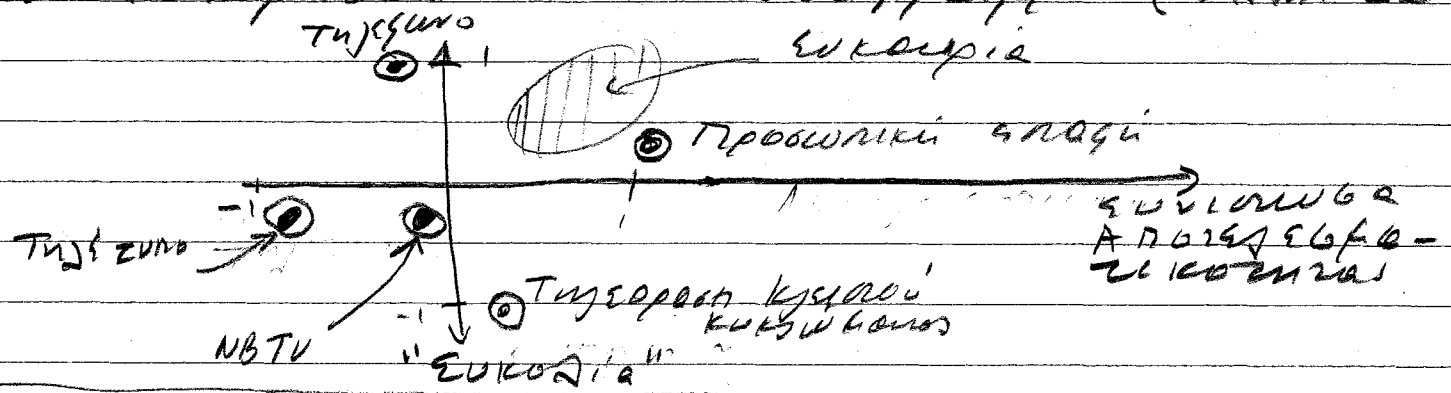 Τηλέφωνο
1
Ευκαιρία
Προσωπική επαφή
-1
1
Συνιστώσα
Αποτελεσμα-
τικότητας
Τηλέτυπο
-1
Τηλεόραση κλειστού
κυκλώματος
NBTV
"Ευκολία"